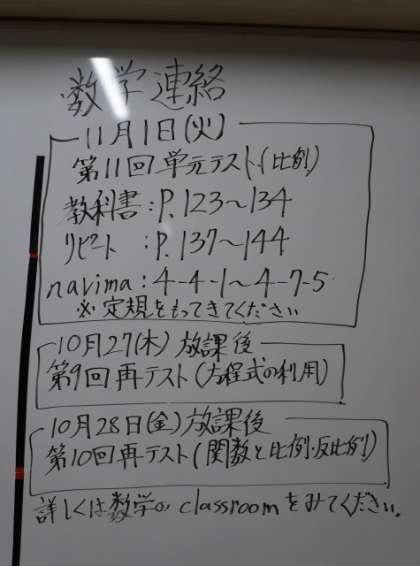 数学連絡
11月1日(火)
第11回単元テスト(比例)
教科書:P.123～134
リピート:P.137～144
navima:4-4-1～4-7-5
※定規をもってきてください
10月27(木)放課後
第9回再テスト(方程式の利用)
10月28日(金)放課後
第10回再テスト(関数と比例・反比例)
詳しくは数学のclassroomをみてください。